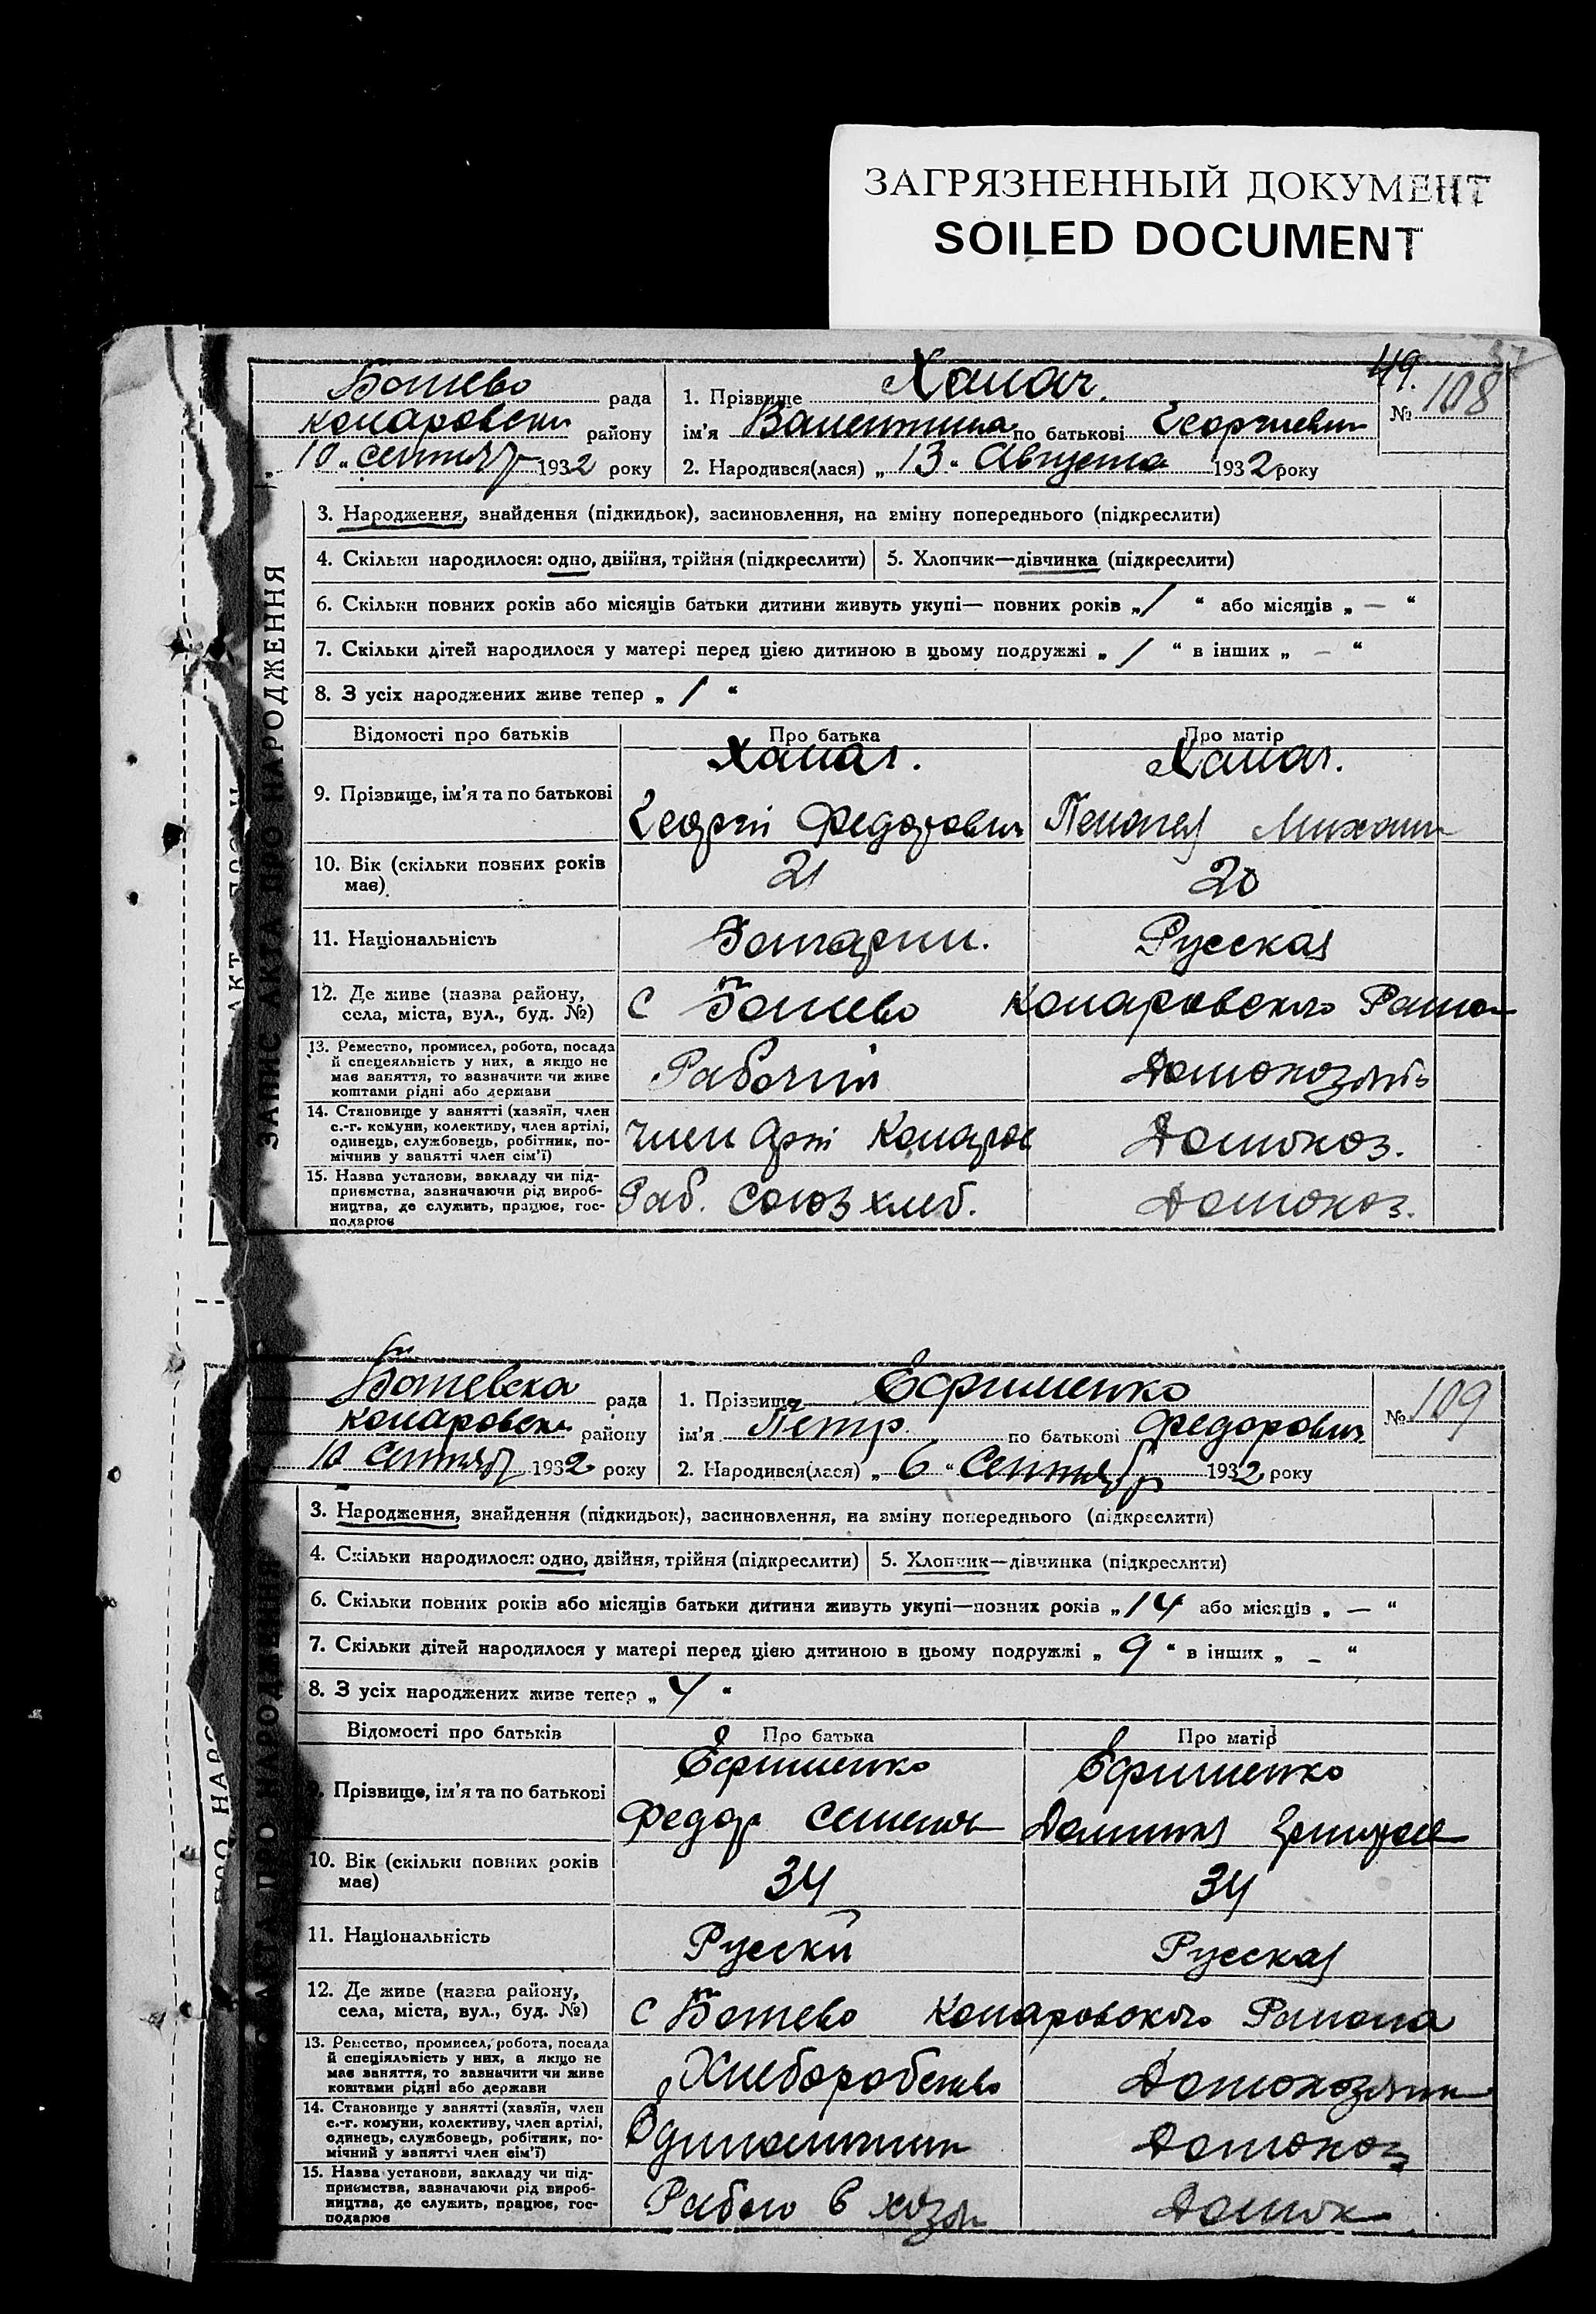 ЗАГРЯЗНЕННЫЙ ДОКУМЕНТ
SOILED DOCUMENT
49. 57
Ботево рада
Коларовски району
„ 10 „ сентябр 1932 року
1. Прізвище Халач.
ім'я Валентина по батькові Георгиевна
2. Народився(лася) „ 13 “ Августа 1932 року
№ 108
ЗАПИС АКТА ПРО НАРОДЖЕННЯ
3. Народження, знайдення (підкидьок), засиновлення, на зміну попереднього (підкреслити)
4. Скільки народилося: одно, двійня, трійня (підкреслити) 5. Хлопчик—дівчинка (підкреслити)
6. Скільки повних років або місяців батьки дитини живуть укупі— повних років „ 1 “ або місяців „ — “
7. Скільки дітей народилося у матері перед цією дитиною в цьому подружжі „ 1 “ в інших „ — “
8. З усіх народжених живе тепер „ 1 “
Відомості про батьків Про батька Про матір
9. Прізвище, ім'я та по батькові
Халач. Халач.
Георгій Федорович Пелагея Михаил
10. Вік (скільки повних років має) 21 20
11. Національність Болгарин. Русская
12. Де живе (назва району, села, міста, вул., буд. №) с Ботево Коларовского Район
13. Ремество, промисел, робота, посада й спецеяльність у них, а якщо не має заняття, то зазначити чи живе коштами рідні або держави
Рабочий Домохозяй
14. Становище у занятті (хазяїн, член с.-г. комуни, колективу, член артілі, одинець, службовець, робітник, помічнив у занятті член сім'ї)
член Арт Коларов Домохоз.
15. Назва установи, закладу чи підприємства, зазначаючи рід виробництва, де служить, працює, господарює
Раб. Союзхлеб. Домохоз.
Ботевска рада
Коларовски району
10 Сентябр 1932 року
1. Прізвище Ефименко
ім'я Пётр по батькові Федорович
2. Народився(лася) „ 6 “ Сентябр 1932 року
№ 109
3. Народження, знайдення (підкидьок), засиновлення, на зміну попереднього (підкреслити)
4. Скільки народилося: одно, двійня, трійня (підкреслити) 5. Хлопчик—дівчинка (підкреслити)
6. Скільки повних років або місяців батьки дитини живуть укупі—повних років „ 14 або місяців „ — “
7. Скільки дітей народилося у матері перед цією дитиною в цьому подружжі „ 9 “ в інших „ — “
8. З усіх народжених живе тепер „ 4 “
Відомості про батьків Про батька Про матір
9. Прізвище, ім'я та по батькові
Ефименко Ефименко
Федор Семенов
10. Вік (скільки повних років має) 34 34
11. Національність Руский Русская
12. Де живе (назва району, села, міста, вул., буд. №) с Ботево Коларовского Района
13. Ремесство, промисел, робота, посада й спеціяльність у них, а якщо не має заняття, то зазначити чи живе коштами рідні або держави
Хлеборобство Домохозяйк
14. Становище у занятті (хазяїн, член с.-г. комуни, колективу, член артілі, одинець, службовець, робітник, помічний у занятті член сім'ї)
Домохоз
15. Назва установи, закладу чи підприємства, зазначаючи рід виробництва, де служить, працює, господарює
в хозяй Домох